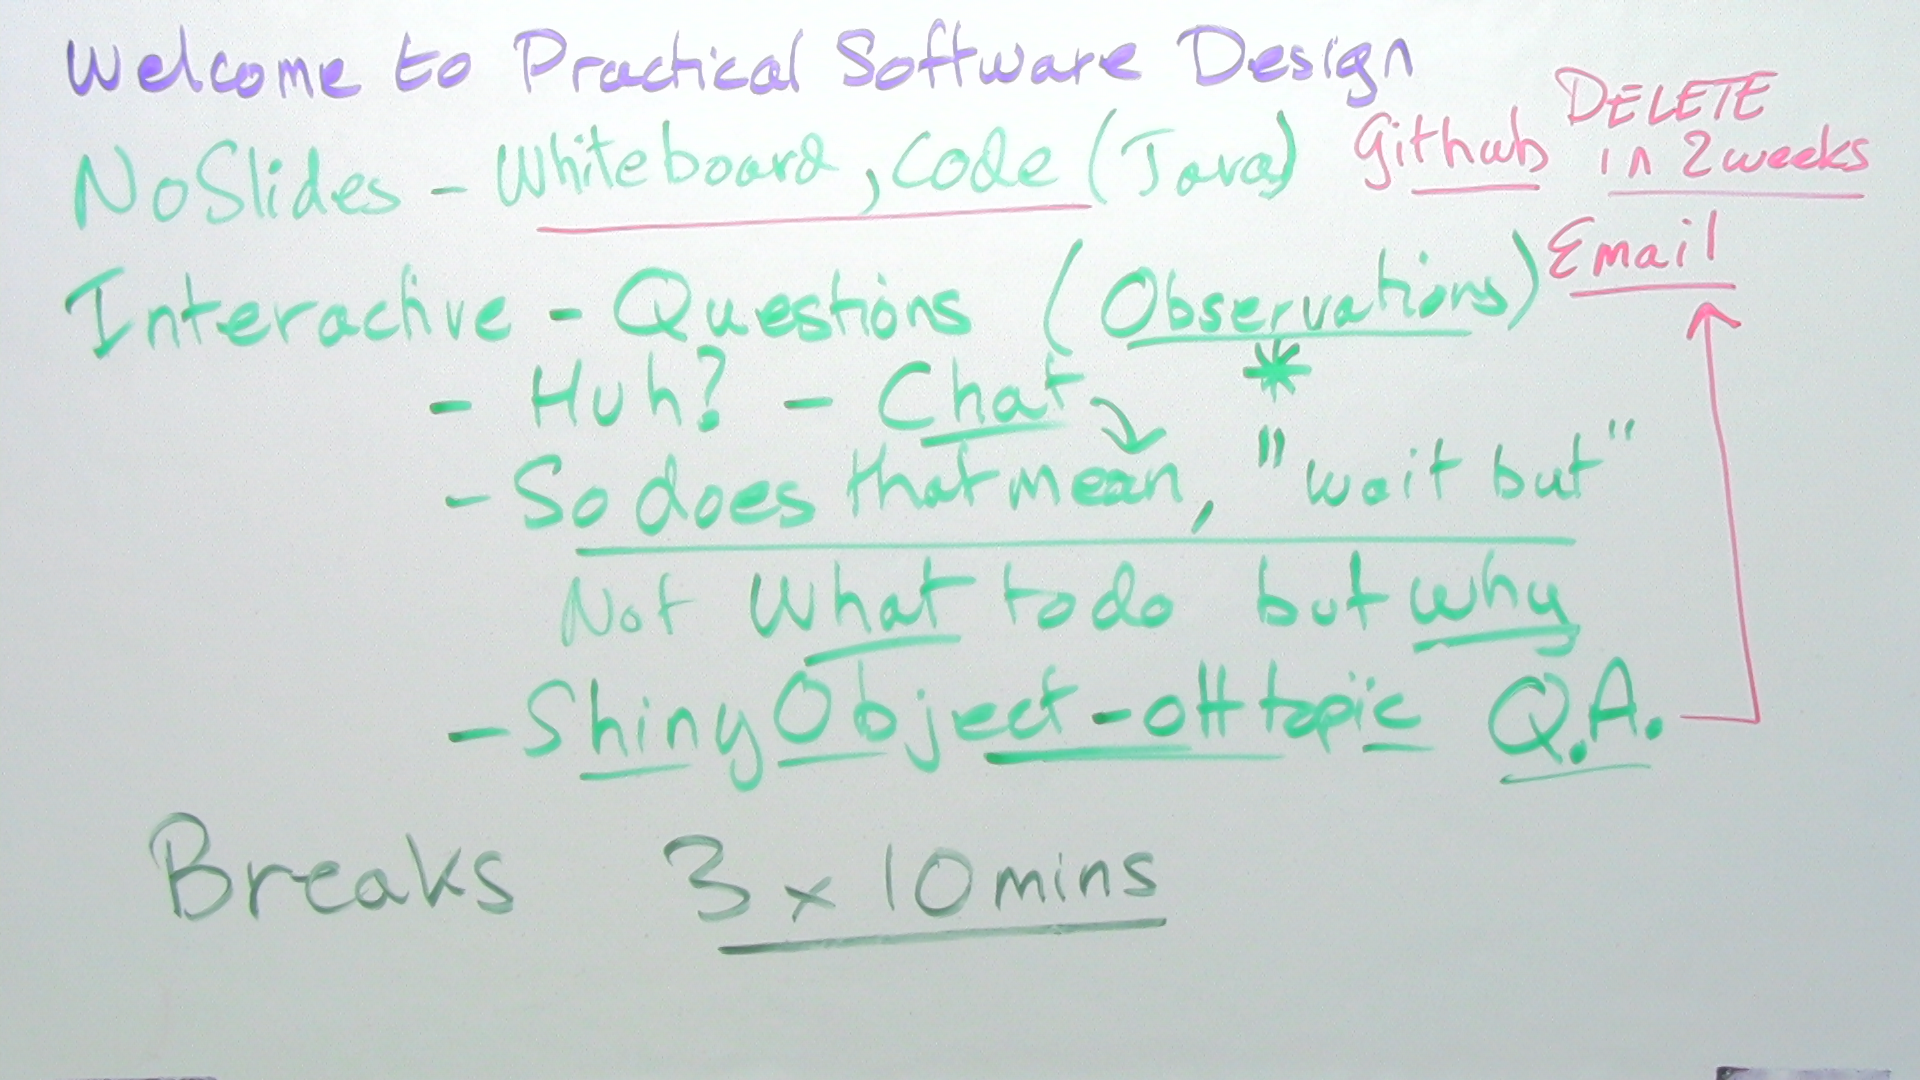 Welcome to Practical Software Design
No Slides - Whiteboard, Code (Java) Github DELETE
in 2 weeks
Email
Interactive - Questions (Observations)
*
- Huh? - Chat
- So does that mean, "wait but"
Not What to do but why
- Shiny Object - off topic Q.A.
Breaks 3 x 10 mins